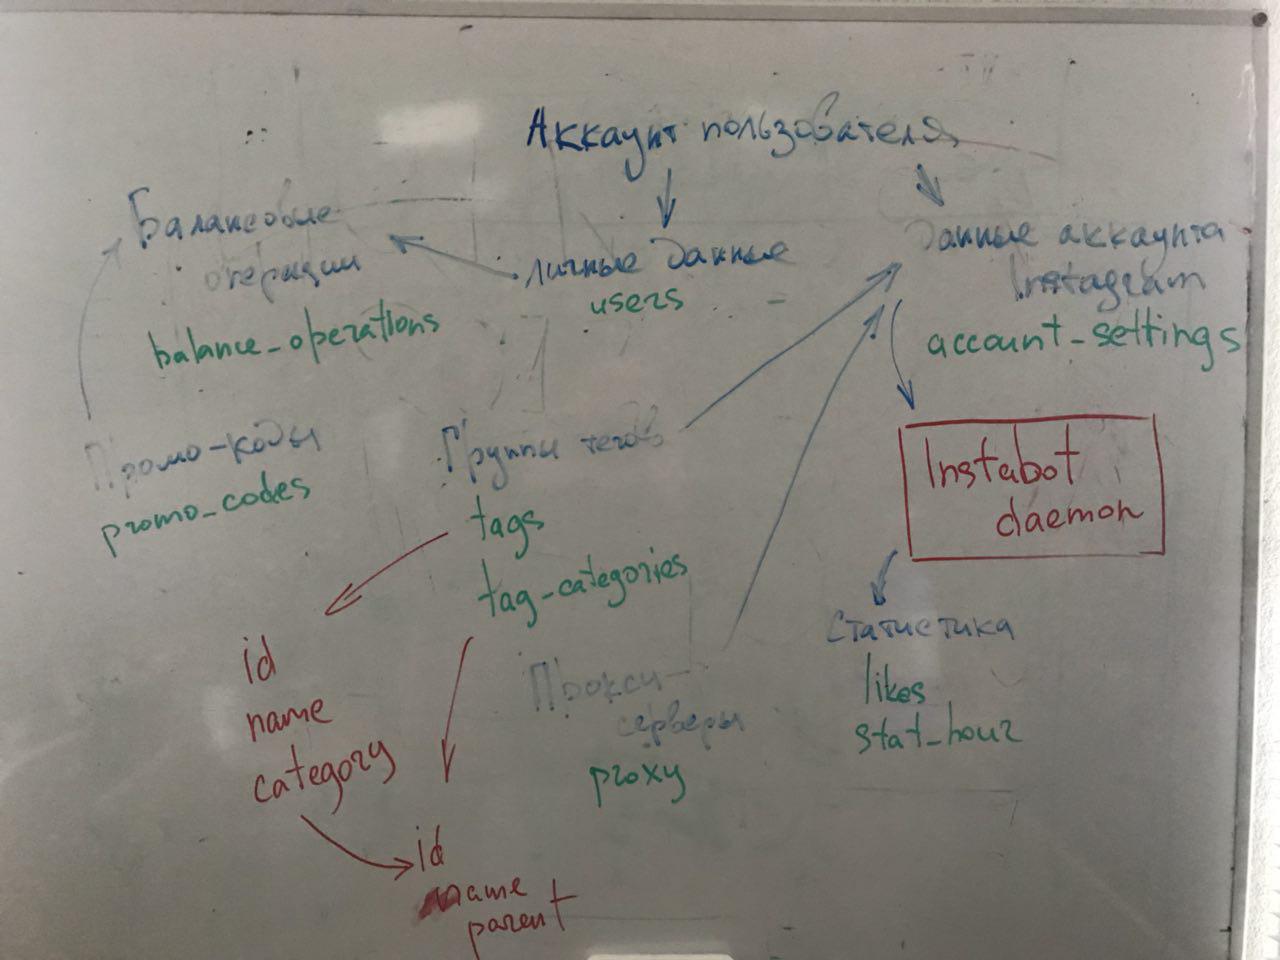 Аккаунт пользователя
Балансовые
операции
balance_operations
личные данные
users
Данные аккаунта
Instagram
account_settings
Промо-коды
promo_codes
Группы тегов
tags
tag_categories
Instabot
daemon
id
name
category
Прокси-
серверы
proxy
Статистика
likes
stat_hour
id
name
parent